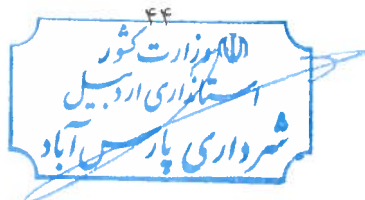 ۴۴
وزارت کشور
استانداری اردبیل
شهرداری پارس آباد